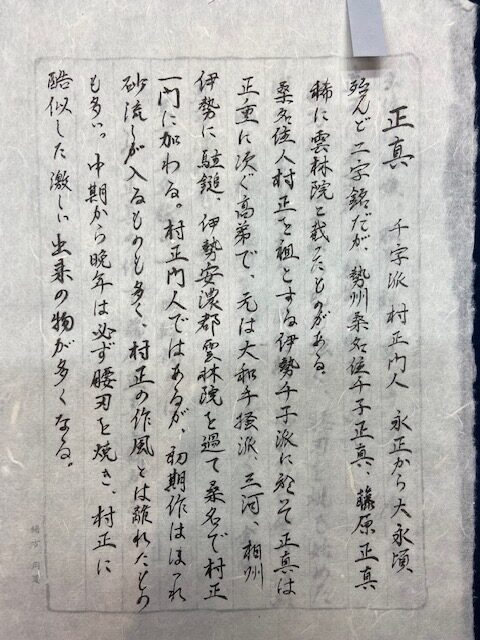 正真　千字派 村正門人　永正から大永頃
殆んど二字銘だが、勢州桑名住千子正真、藤原正真
稀に雲林院と截ったものがある。
桑名住人村正を祖とする伊勢千子派に於て正真は
正重に次ぐ高弟で、元は大和手掻派、三河、相州
伊勢に駐鎚、伊勢安濃郡雲林院を過て桑名で村正
一門に加わる。村正門人ではあるが、初期作はほつれ
砂流しが入るものも多く、村正の作風とは離れたもの
も多い。中期から晩年は必ず腰刃を焼き、村正に
酷似した激しい出来の物が多くなる。